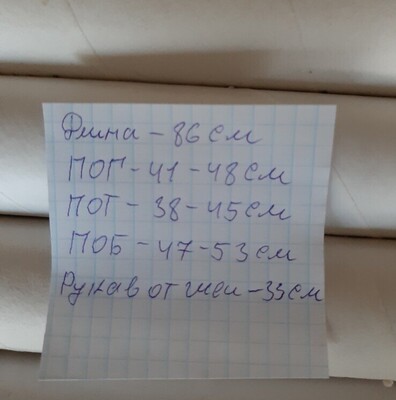 Длина - 86 см
ПОГ - 41 - 48 см
ПОТ - 38 - 45 см
ПОБ - 47 - 53 см
Рукав от шеи - 33 см